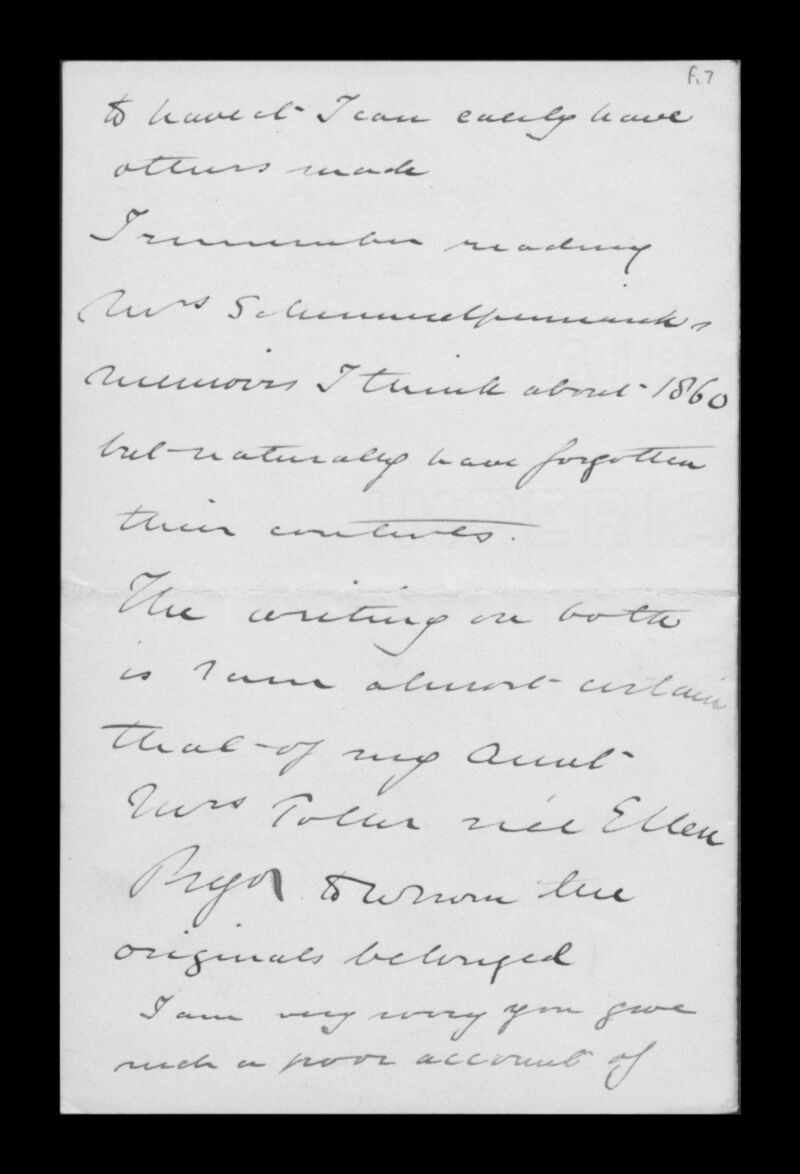 F.7
to have it I can easily have
others made
I remember reading
Mrs Schimmelpennincks
memoirs I think about 1860
but naturally have forgotten
their contents.
The writing on both
is I am almost certain
that of my Aunt
Mrs Toller née Ellen
Pryor to whom the
originals belonged
I am very sorry you give
such a poor account of